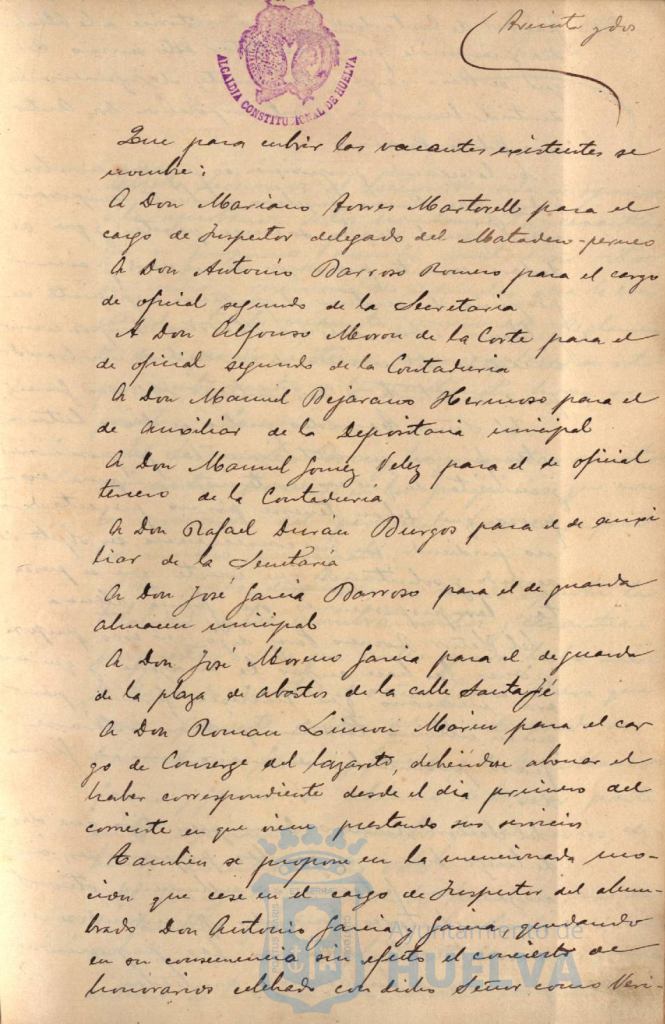 Treinta y dos
ALCALDIA CONSTITUCIONAL DE HUELVA
Que para cubrir las vacantes existentes se
nombre:
A Don Mariano Torres Martorell para el
cargo de Inspector delegado del Matadero-perneo
A Don Antonio Barroso Romero para el cargo
de oficial segundo de la Secretaria
A Don Alfonso Moron de la Corte para el
de oficial segundo de la Contaduria
A Don Manuel Bejarano Hermoso para el
de auxiliar de la Depositaria municipal
A Don Manuel Gomez Velez para el de oficial
tercero de la Contaduría
A Don Rafael Durán Burgos para el de auxi-
liar de la Secretaría
A Don José Garcia Barroso para el de guarda
almacen municipal
A Don José Moreno Garcia para el de guarda
de la plaza de abastos de la calle Santa Fé
A Don Roman Limon Marin para el car-
go de Conserge del lazareto, debiendose abonar el
haber correspondiente desde el dia primero del
corriente en que viene prestando sus servicios
Tambien se propone en la mencionada mo-
cion que cese en el cargo de Inspector del alum-
brado Don Antonio Garcia y Garcia, quedando
en su consecuencia sin efecto el concierto de
honorarios celebrado con dicho Señor como Veri-
Ayuntamiento de
HUELVA